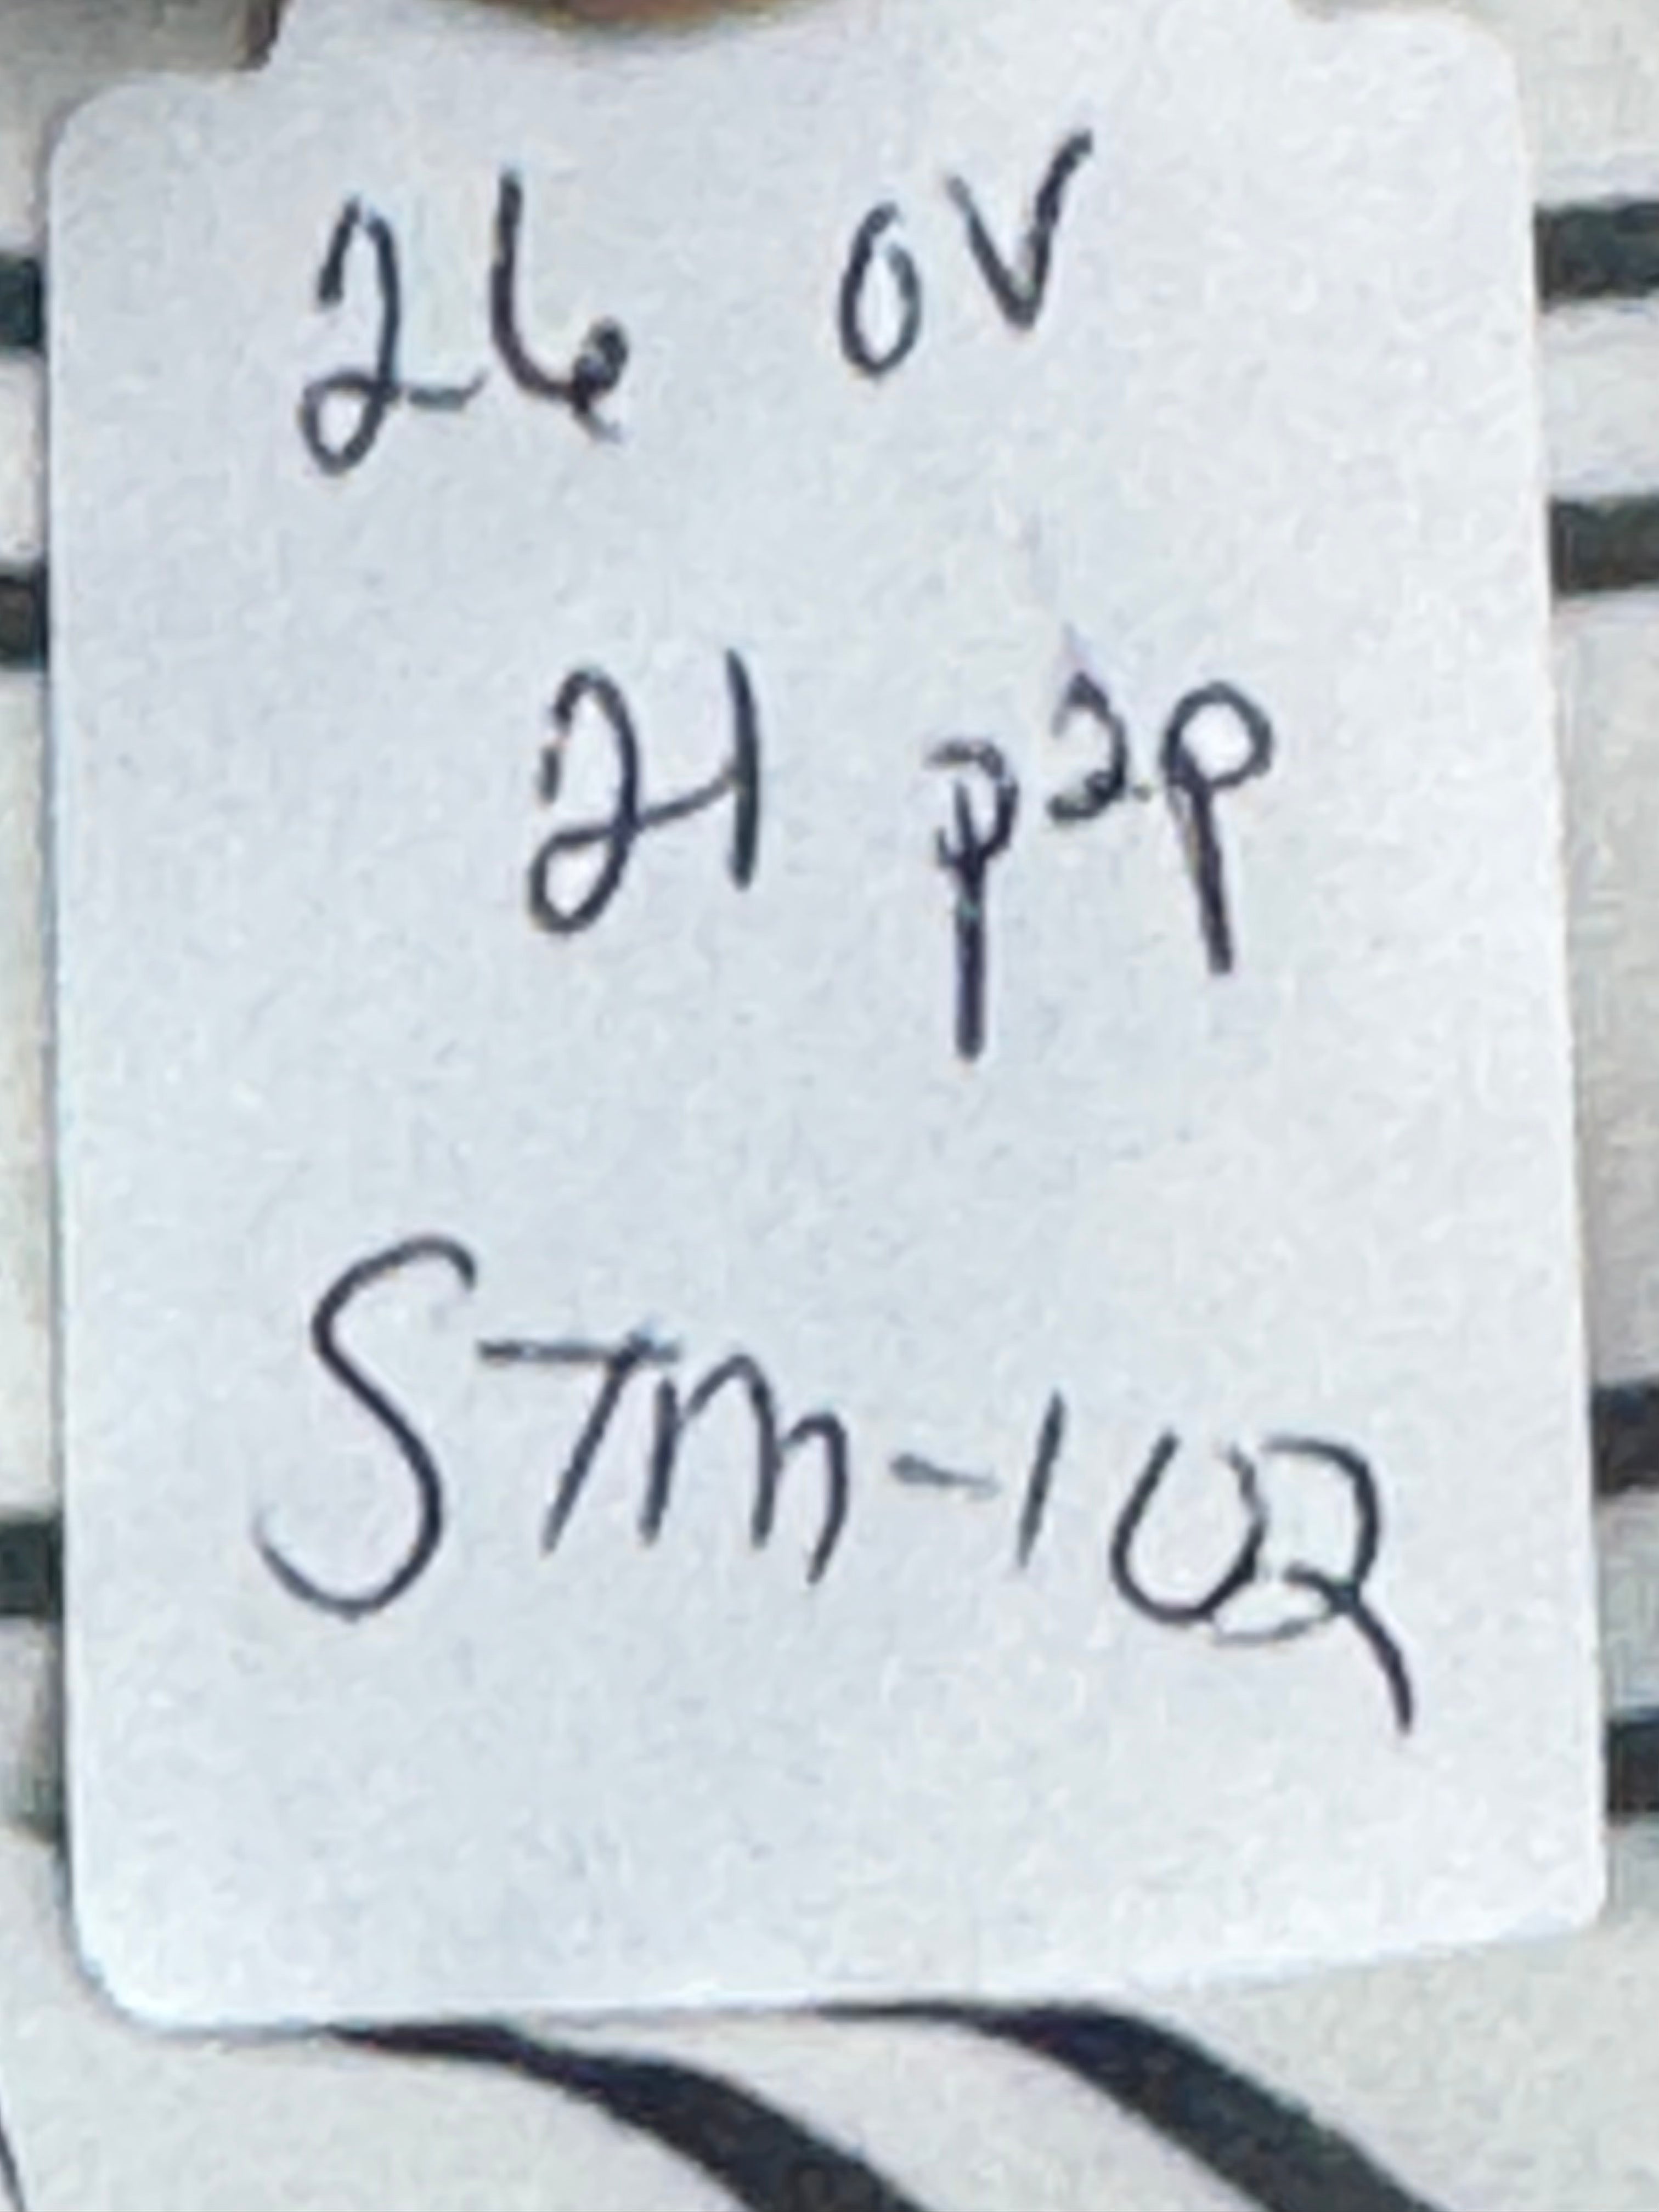 26 OV
21 p2p
STM-102